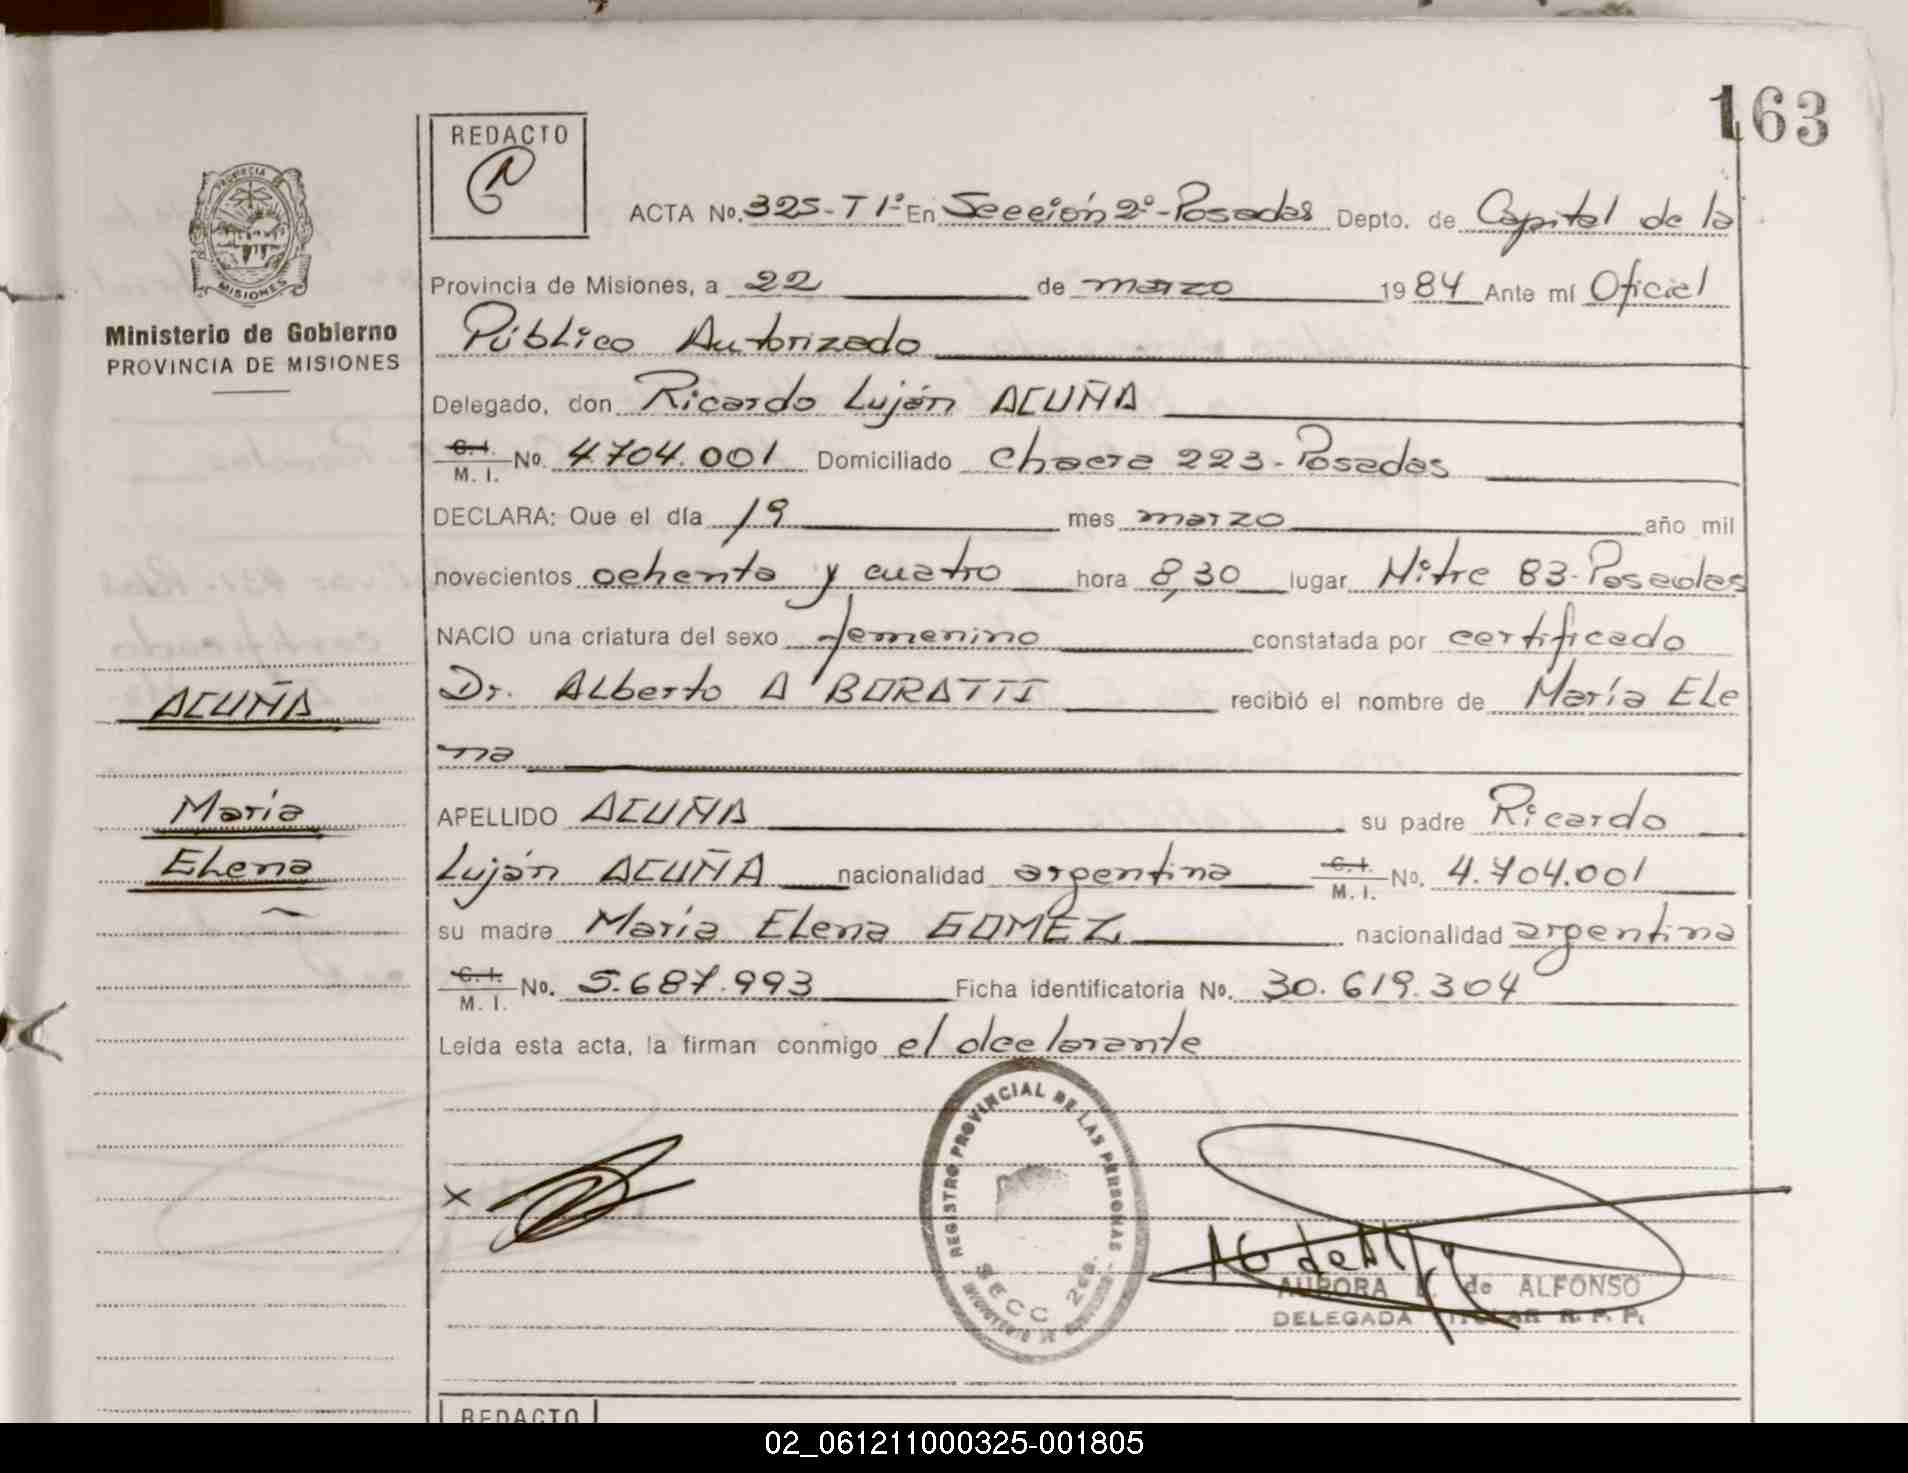 163
REDACTO
PROVINCIA
MISIONES
Ministerio de Gobierno
PROVINCIA DE MISIONES
ACTA No. 325-T1º En Sección 2º-Posadas Depto. de Capital de la
Provincia de Misiones, a 22 de marzo 1984 Ante mí Oficial
Público Autorizado
Delegado, don Ricardo Luján ACUÑA
C. I.
M. I. No. 4.704.001 Domiciliado Chacra 223-Posadas
DECLARA: Que el día 19 mes marzo año mil
novecientos ochenta y cuatro hora 8,30 lugar Mitre 83-Posadas
NACIO una criatura del sexo femenino constatada por certificado
Dr. Alberto A BORATTI recibió el nombre de María Ele
na
ACUÑA
María
Elena
APELLIDO ACUÑA su padre Ricardo
Luján ACUÑA nacionalidad argentina C. I.
M. I. No. 4.704.001
su madre María Elena GOMEZ nacionalidad argentina
C. I.
M. I. No. 5.687.993 Ficha identificatoria No. 30.619.304
Leída esta acta, la firman conmigo el declarante
X
REGISTRO PROVINCIAL DE LAS PERSONAS
SECC 2da.
AURORA de ALFONSO
DELEGADA TITULAR R. P. P.
REDACTO
02_061211000325-001805